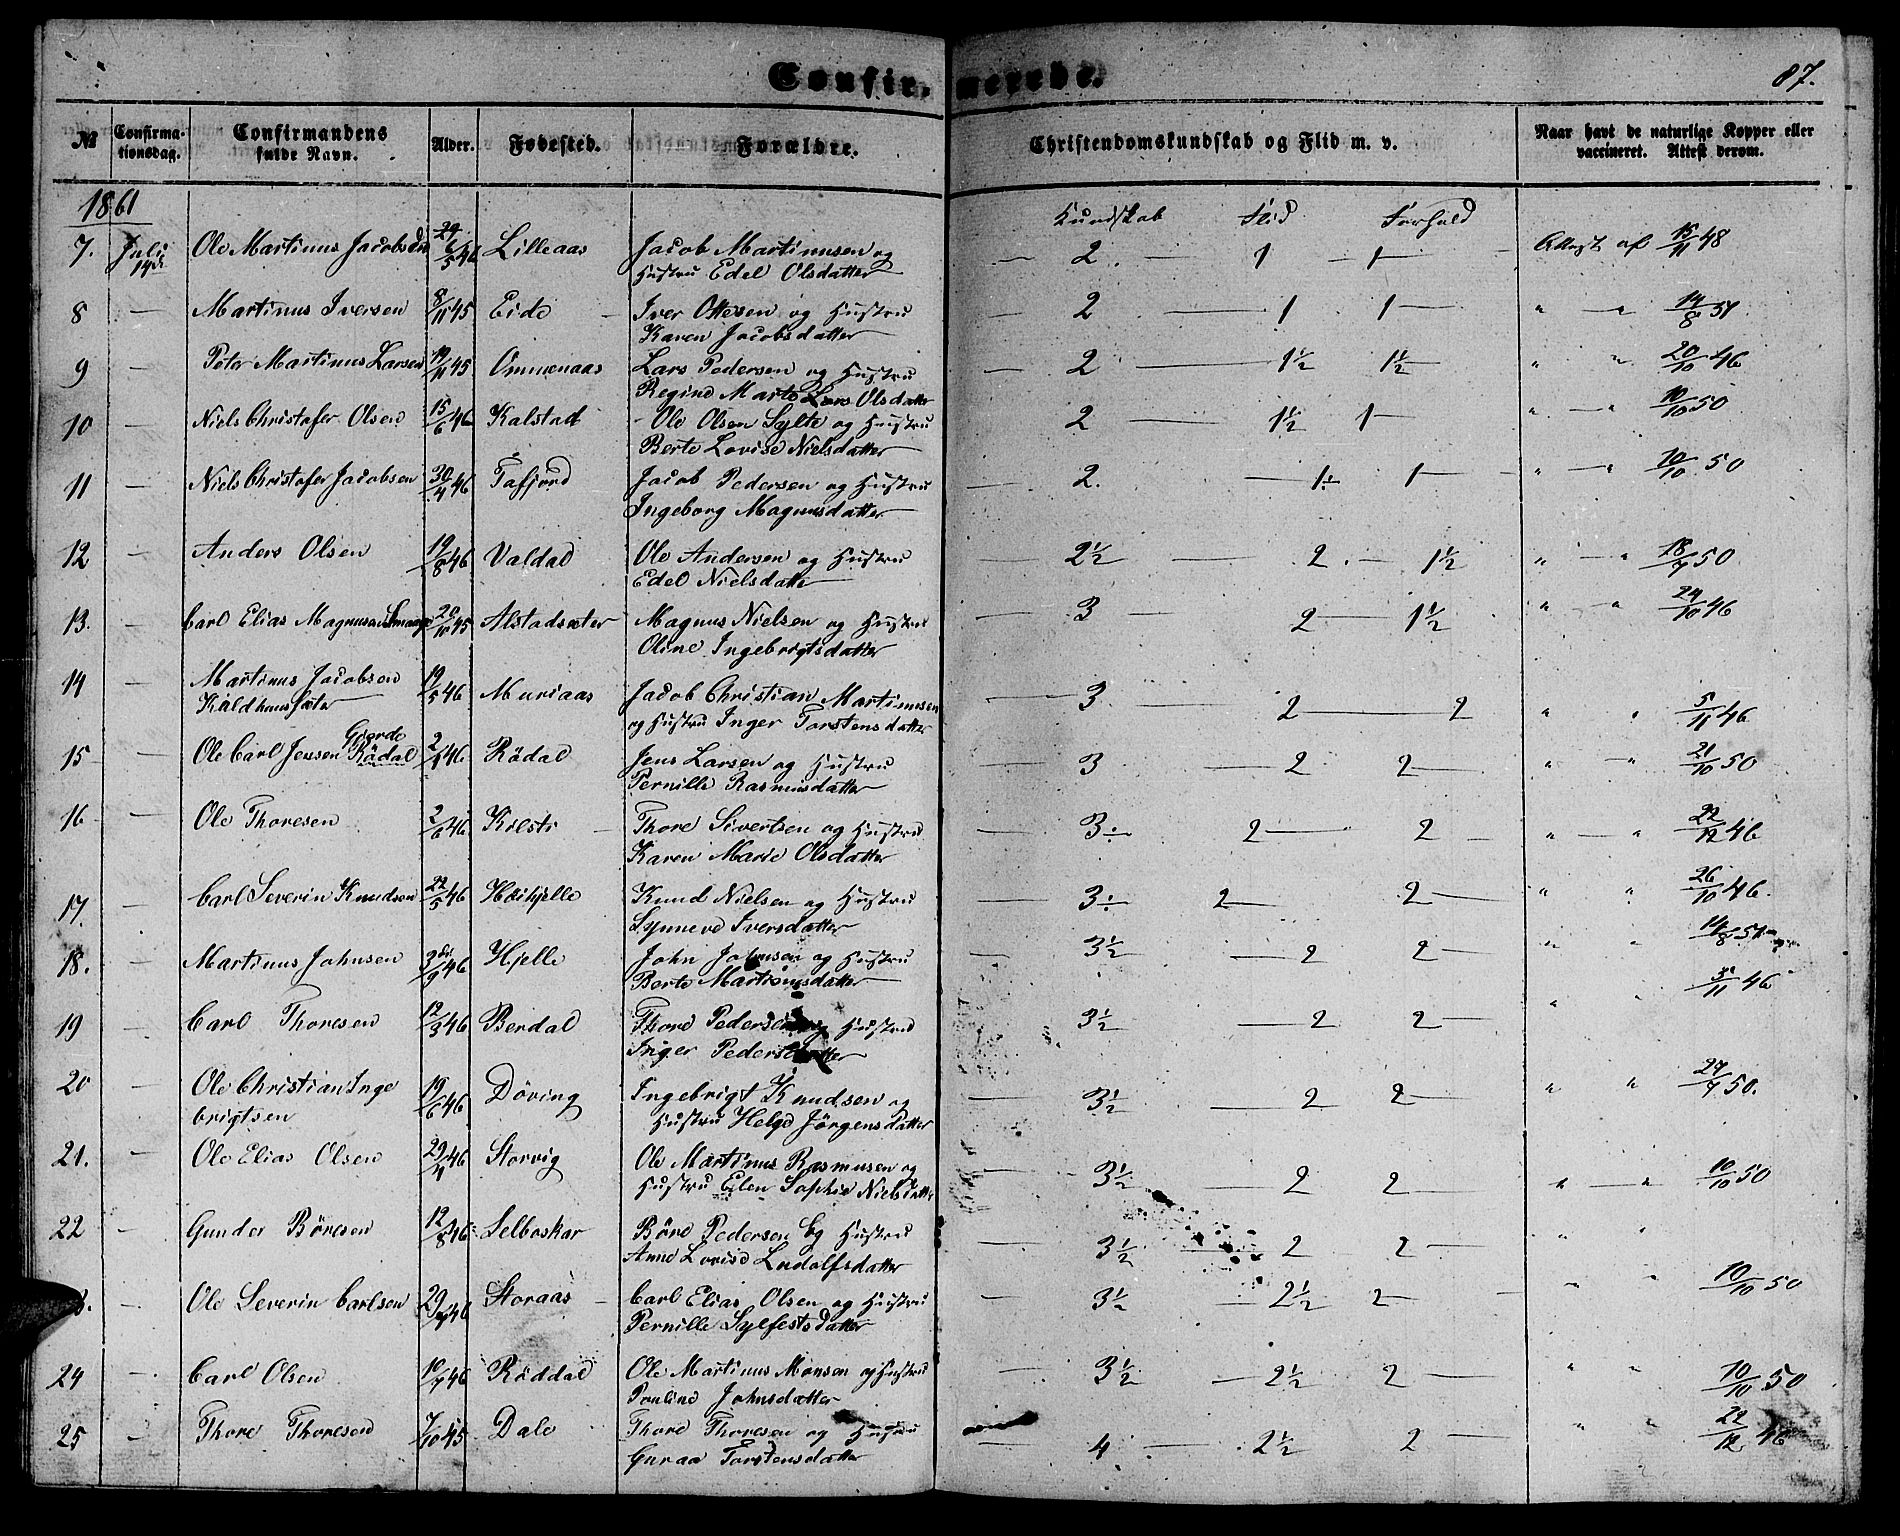 Confirmerede.
87.
№ Confirmationsdag. Confirmandens fulde Navn. Alder. Fødested. Forældre. Christendomskundskab og Flid m. v. Naar havt de naturlige Kopper eller vaccineret. Attest derom.
1861
Kundskab Flid Forhold
7. Juli 14de Ole Martinus Jacobsen 5 46 Lilleaas Jacob Martinusen og 2 1 1 Attest af 15/11 48
Hustru Edel Olsdatter
8 — Martinus Iversen 8/11 45 Eide Iver Ottesen og Hustru 2 1 1 " — " 14/8 51
Karen Jacobsdatter
9 — Peter Martinus Larsen 19/11 45 Ommenaas Lars Pedersen og Hustru 2 1½ 1½ " " 20/10 46
Regine Marte Olsdatter
10 — Niels Christofer Olsen 15/6 46 Kalstad Ole Olsen Sylte og Hustru 2 1½ 1 " — " 10/10 50
Berte Lovise Nielsdatter
11 — Niels Christofer Jacobsen 30/4 46 Tafjord Jacob Pedersen og Hustru 2. 1÷ 1 " — " 10/10 50
Ingeborg Magnusdatter
12 — Anders Olsen 19/8 46 Valdal Ole Andersen og Hustru 2½ 2 1½ " — " 18/7 50
Edel Nielsdatter
13. — Carl Elias Magnusen 20/10 45 Alstadsæter Magnus Nielsen og Hustru 3 2 1½ " " 24/10 46
Oline Ingebrigtsdatter
14 — Martinus Jacobsen 19/5 46 Muriaas Jacob Christian Martinusen 3. 2 2 " " 5/11 46
Kaldhussæter og Hustru Inger Torstensdatter
Gjerde
15 — Ole Carl Jensen Rödal 46 Rödal Jens Larsen og Hustru 3 2 2 " " 21/10 50
Pernille Rasmusdatter
16 — Ole Thoresen 2/6 46 Kilsti Thore Sivertsen og Hustru 3÷ 2 2 " — " 22/12 46
Karen Marie Olsdatter
17. — Carl Severin Knudsen 22/5 46 Höihjelle Knud Nielsen og Hustru 3÷ 2 2 " " 26/10 46.
Synneve Iversdatter
18. — Martinus Johnsen 46 Hjelle John Johnsen og Hustru 3½ 2 2 " " 14/8 51
Berte Martinusdatter
19 — Carl Thoresen 12/3 46 Berdal Thore Pedersen og Hustru 3½ 2 2 " " 5/11 46
Inger Pedersdatter
20 — Ole Christian Inge 19/6 46 Döving Ingebrigt Knudsen og 3½ 2 2 " " 27/7 50.
brigtsen Hustru Helge Jörgensdatter
21. — Ole Elias Olsen 46 Storvig Ole Martinus Rasmusen og 3½ 2 2 " — " 10/10 50
Hustru Elen Sophie Nielsdatter
22 — Gunder Böresen 12/8 46 Selboskar Böre Pedersen og Hustru 3½ 2 2 " "
Anne Lovise Ludolfsdatter
— Ole Severin Carlsen 46 Storaas Carl Elias Olsen og Hustru 3½ 2½ 2 " " 10/10 50
Pernille Sylfestsdatter
24 — Carl Olsen 10/7 46 Röddal Ole Martinus Monsen og Hustru 3½ 2½ 2 " " 10/10 50
Pouline Johnsdatter
25 — Thore Thoresen 7/10 45 Dale Thore Thoresen og Hustru 4 2½ 2 " " 22/12 46
Guraa Torstensdatter